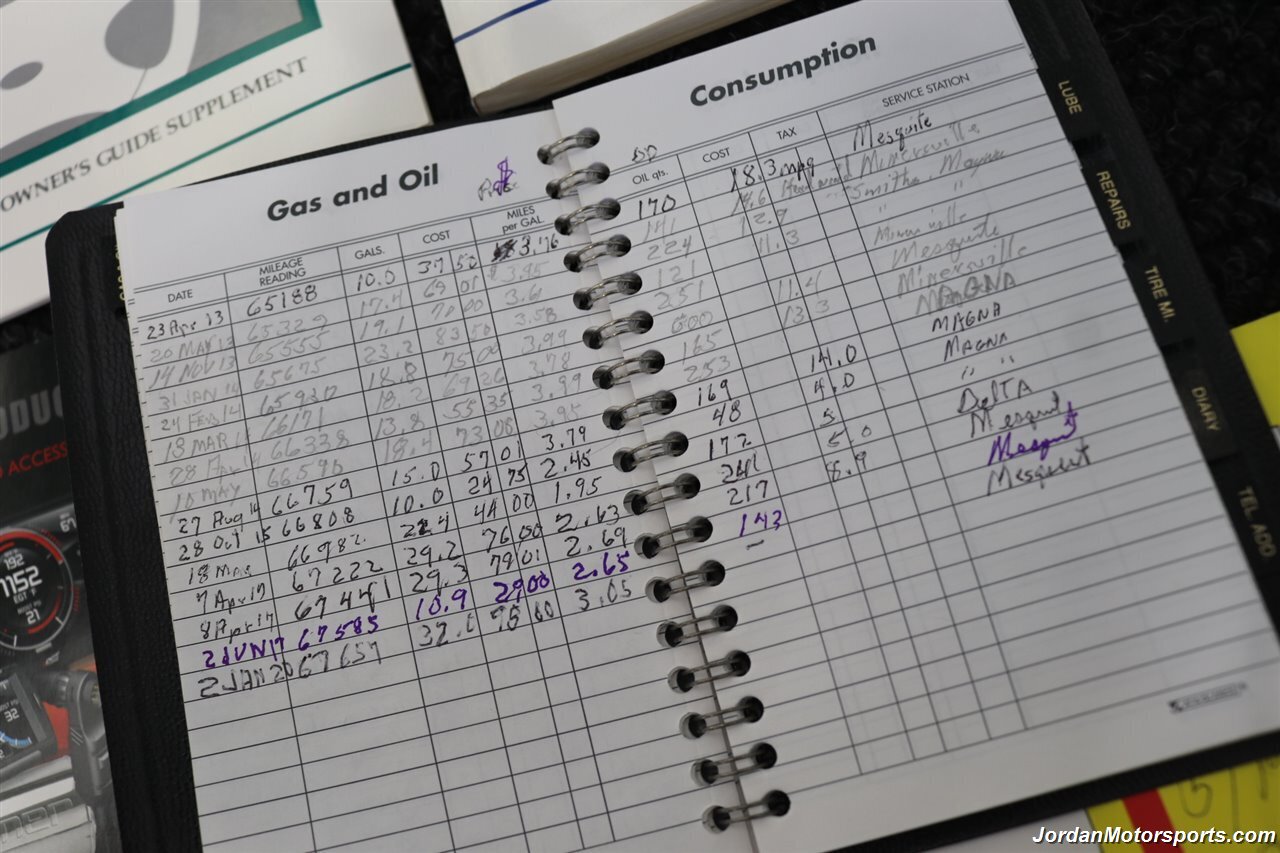 OWNER'S GUIDE SUPPLEMENT
Gas and Oil
DATE MILEAGE READING GALS. COST MILES per GAL.
23 Apr 13 65188 10.0 37 50 3.76
20 MAY 13 65329 17.4 69 01 3.95
14 NOV 13 65555 19.1 70 00 3.61
31 JAN 14 65675 23.2 83 50 3.58
24 FEB 14 65930 18.8 75 00 3.99
18 MAR 66171 18.2 69 26 3.78
28 Apr 14 66338 13.8 55 35 3.99
10 MAY 66590 18.4 73 08 3.95
27 Aug 14 66759 15.0 57 01 3.79
28 Oct 15 66808 10.0 24 75 2.45
18 Mar 66982 22.4 44 00 1.95
7 Apr 17 67222 29.2 76 00 2.63
8 Apr 17 67441 29.3 79 01 2.69
2 JUN 17 67585 10.9 29 00 2.65
2 JAN 20 67657 32. 75 00 3.05
Consumption
OIL qts. COST TAX SERVICE STATION
170 18.3 mpg Mesquite
141 14.6 Minersville
224 12.9 Smiths, Magna
121 11.3 "
251 Minersville
600 11.4 Mesquite
165 13.3 Minersville
253 MAGNA
169 14.0 MAGNA
48 4.0 MAGNA
172 5 " "
241 5.0 DelTA
217 8.9 Mesquit
142 Mesquit
— Mesquit
LUBE
REPAIRS
TIRE MI.
DIARY
TEL. ADD
ACCESS
192
1152
EGT F
21
32
JordanMotorsports.com